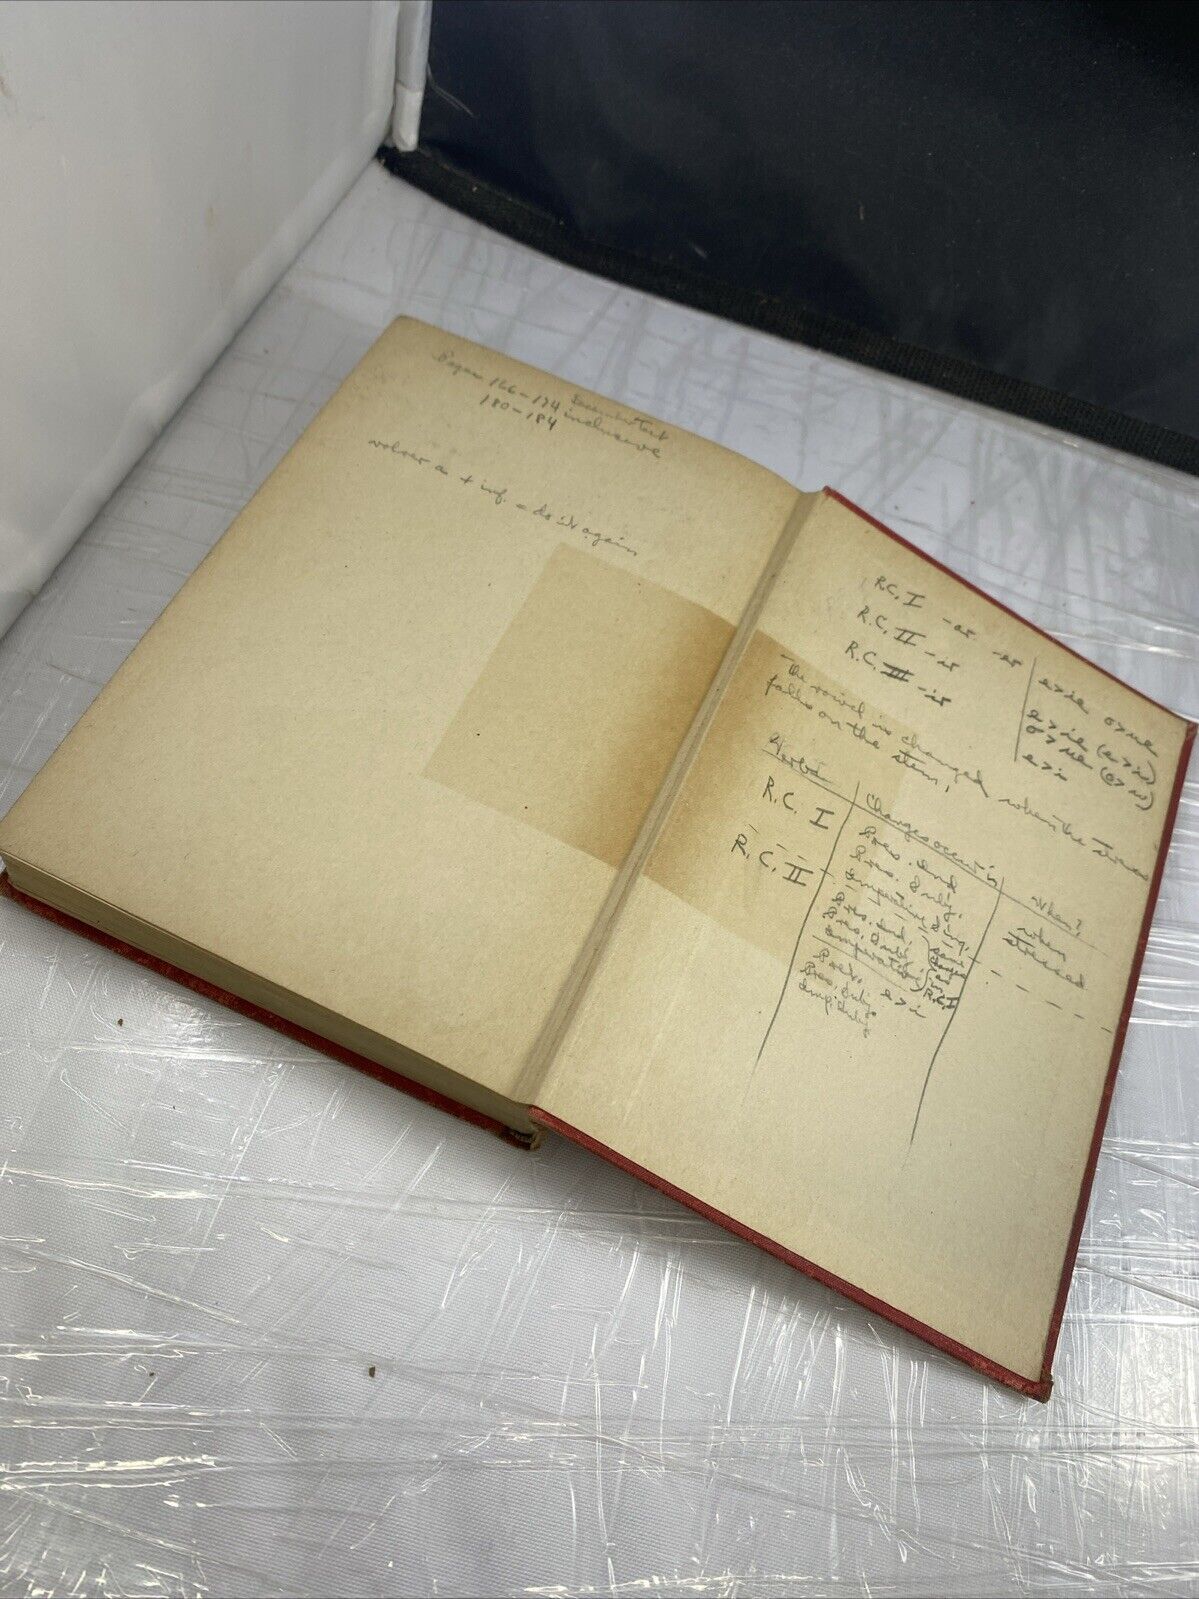 Pages 166-174 inclusive
180-184
December Test
volver a + inf. = do it again
R.C. I -ar -er | e>ie o>ue
R.C. II -ir | e>ie (e>i)
o>ue (o>u)
R.C. III -ir | e>i
The vowel is changed when the stress
falls on the stem.
Verbs | Changes occur in | When?
R.C. I | Pres. ind. | when
Pres. subj. | stressed
imperative sing.
R.C. II | Pres. ind.
Pres. subj.
imperative
R.C. I
Pres. e>i
Pres. subj.